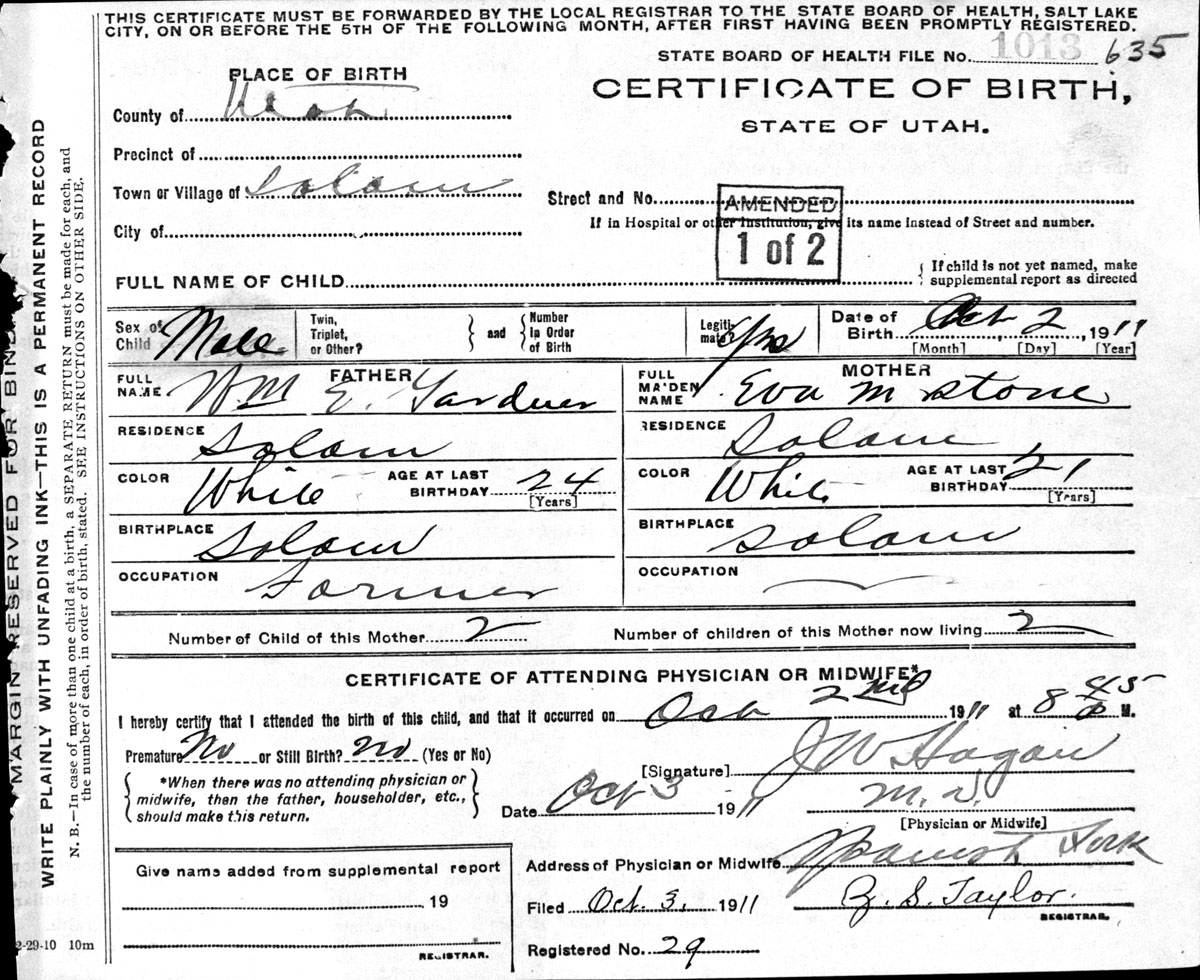 THIS CERTIFICATE MUST BE FORWARDED BY THE LOCAL REGISTRAR TO THE STATE BOARD OF HEALTH, SALT LAKE
CITY, ON OR BEFORE THE 5TH OF THE FOLLOWING MONTH, AFTER FIRST HAVING BEEN PROMPTLY REGISTERED.
STATE BOARD OF HEALTH FILE No. 1013 635
PLACE OF BIRTH
CERTIFICATE OF BIRTH,
STATE OF UTAH.
County of Utah
Precinct of
Town or Village of Salem
City of
Street and No.
AMENDED
1 of 2
If in Hospital or other Institution, give its name instead of Street and number.
FULL NAME OF CHILD
If child is not yet named, make
supplemental report as directed
Sex of Child Male
Twin, Triplet, or Other?
and
Number in Order of Birth
Legitimate? Yes
Date of Birth Oct 2, 1911
[Month] [Day] [Year]
FATHER
FULL NAME Wm E. Gardner
RESIDENCE Salem
COLOR White AGE AT LAST BIRTHDAY 24
[Years]
BIRTHPLACE Salem
OCCUPATION Farmer
MOTHER
FULL MAIDEN NAME Eva M Stone
RESIDENCE Salem
COLOR White AGE AT LAST BIRTHDAY 21
[Years]
BIRTHPLACE Salem
OCCUPATION
Number of Child of this Mother 2
Number of children of this Mother now living 2
CERTIFICATE OF ATTENDING PHYSICIAN OR MIDWIFE*
I hereby certify that I attended the birth of this child, and that it occurred on Oct 2nd 1911 at 8 45 P M.
Premature No or Still Birth? No (Yes or No)
*When there was no attending physician or
midwife, then the father, householder, etc.,
should make this return.
[Signature] J W Hagan
Date Oct 3 1911 M.D.
[Physician or Midwife]
Address of Physician or Midwife Spanish Fork
Filed Oct. 3, 1911 S. Taylor.
REGISTRAR.
Registered No. 29
Give name added from supplemental report
19
REGISTRAR.
2-29-10 10m
MARGIN RESERVED FOR BIND
WRITE PLAINLY WITH UNFADING INK—THIS IS A PERMANENT RECORD
N. B.—In case of more than one child at a birth, a SEPARATE RETURN must be made for each, and
the number of each, in order of birth, stated. SEE INSTRUCTIONS ON OTHER SIDE.